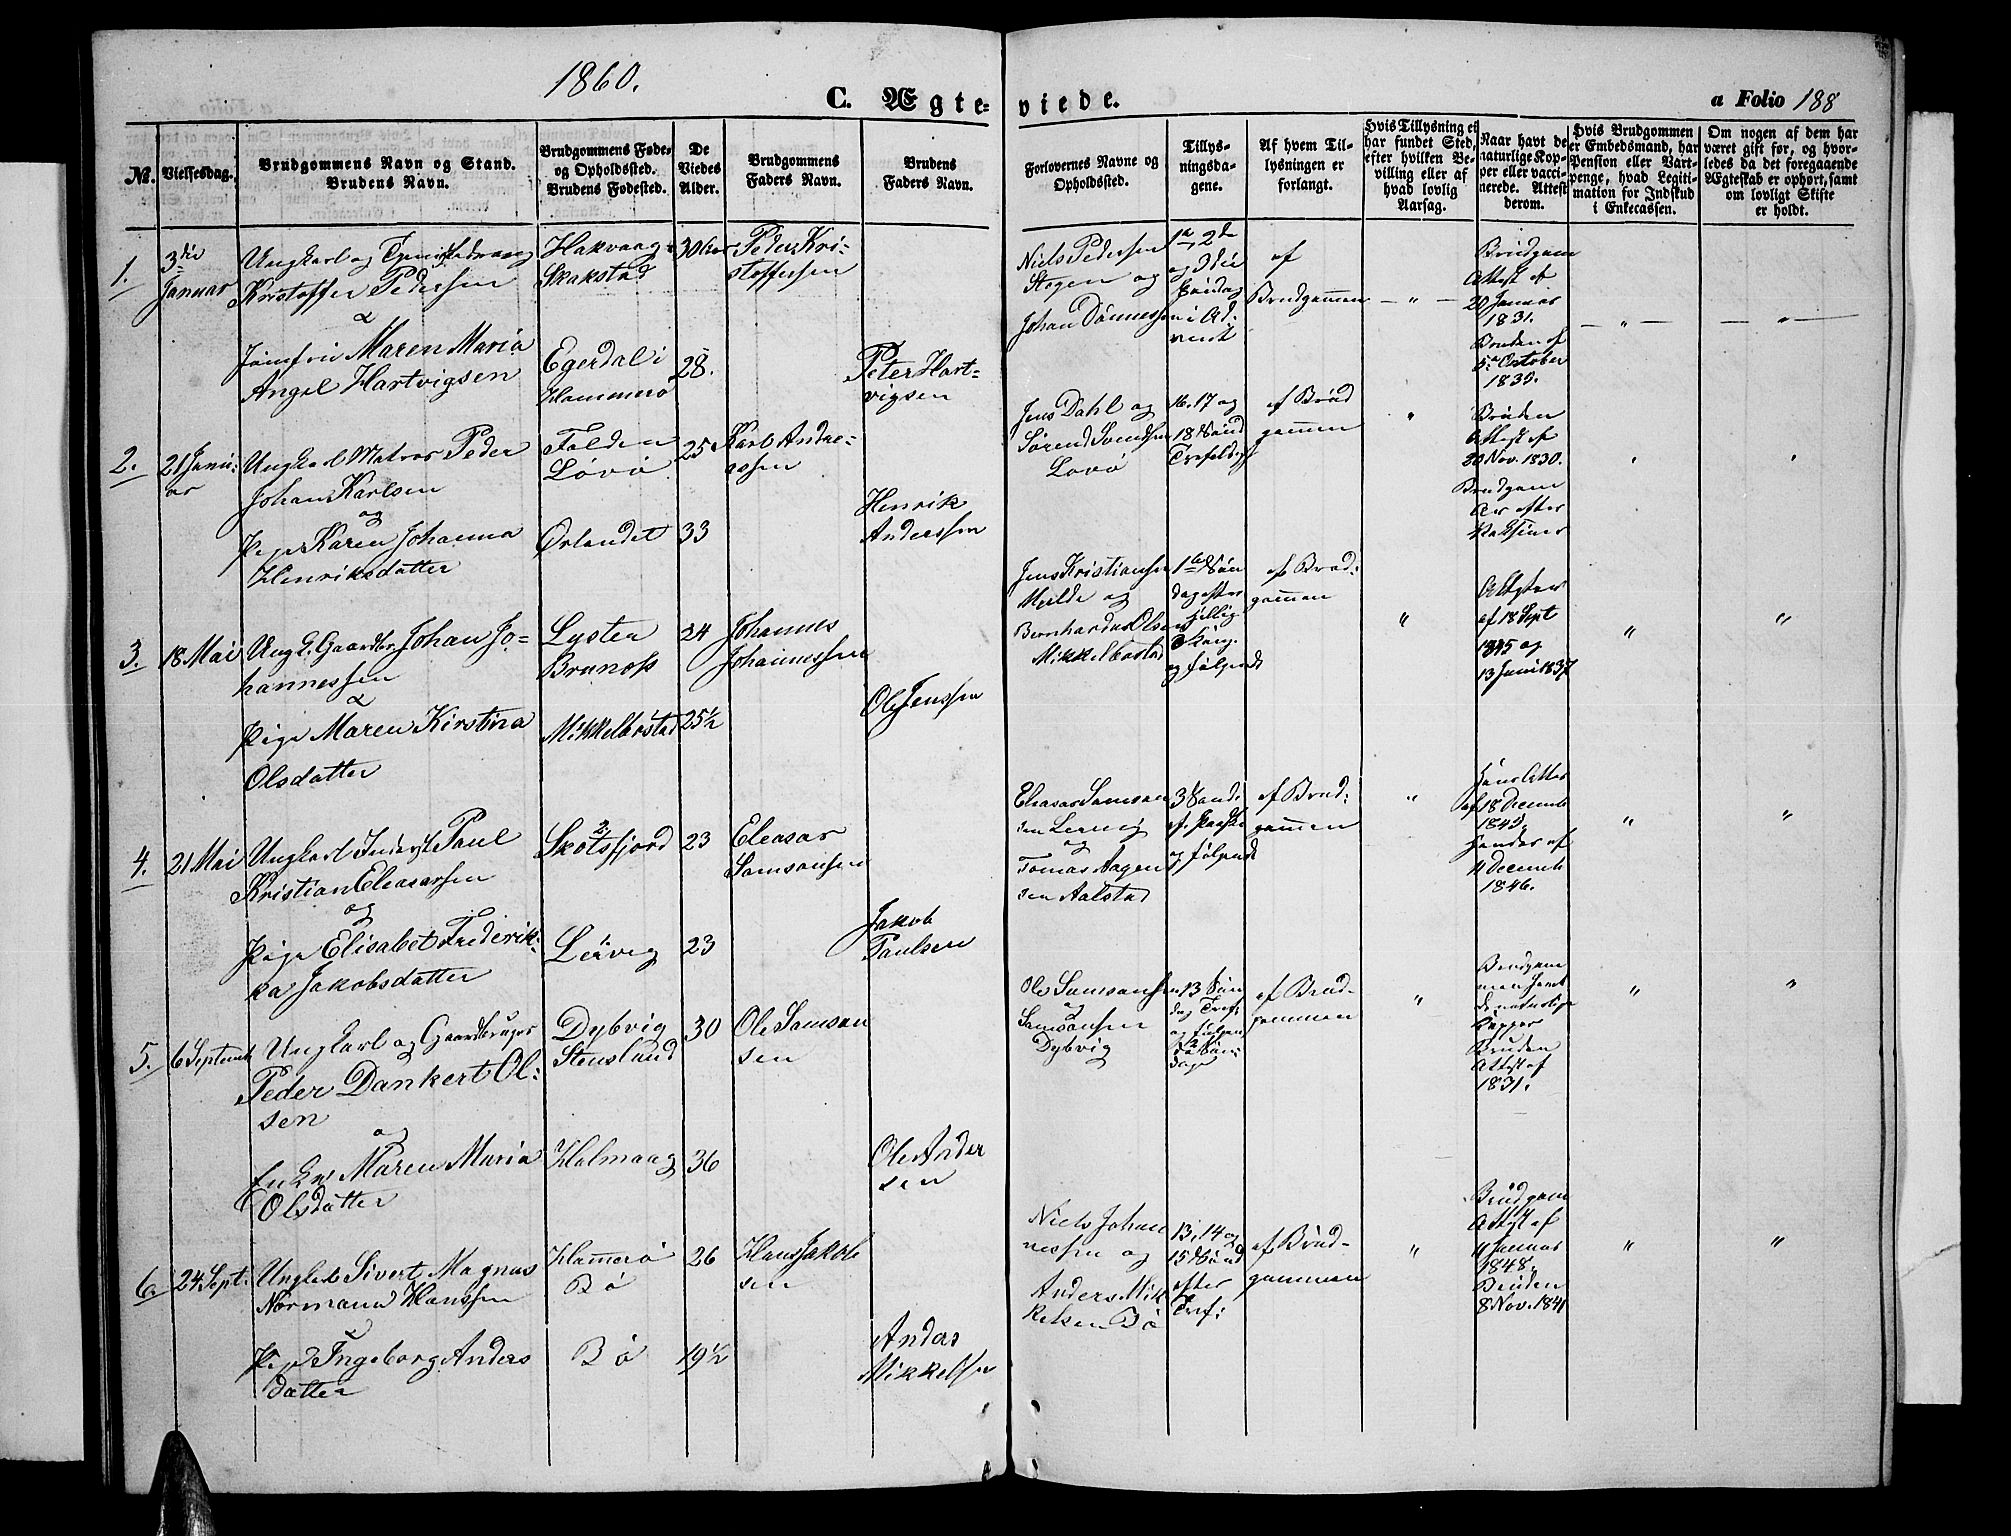 1860.
C. Ægte-
viede.
a Folio 188
№.
Vielsesdag.
Brudgommens Navn og Stand.
Brudens Navn.
Brudgommens Føde-
og Opholdssted.
Brudens Fødested.
De
Viedes
Alder.
Brudgommens
Faders Navn.
Brudens
Faders Navn.
Forlovernes Navne og
Opholdssted.
Tillys-
ningsda-
gene.
Af hvem Til-
lysningen er
forlangt.
Hvis Tillysning ei
har fundet Sted,
efter hvilken Be-
villing eller af
hvad lovlig
Aarsag.
Naar havt de
naturlige Kop-
per eller vacci-
nerede. Attest
derom.
Hvis Brudgommen
er Embedsmand, har
Pension eller Vart-
penge, hvad Legiti-
mation for Indskud
i Enkecassen.
Om nogen af dem har
været gift før, og hvor-
ledes da det foregaaende
Ægteskab er ophørt, samt
om lovligt Skifte
er holdt.
1.
3die
Januar
Ungkarl og
Kristoffer Pedersen
&
Jomfru Maren Maria
Angel Hartvigsen
Hakvaag
Skakstad
Egerdal i
Hammerø
30
28.
Peder Kri-
stoffersen
Peter Hart-
vigsen
Niels Pedersen
Stegen og
Johan Dønnessen
1ste, 2de
og 3die
Søndag
i Ad-
vent
af
Brudgommen
— " —
Brudgom
Attest af
20 Januar
1831.
Bruden af
5te October
1835.
— " —
— " —
2.
21 Janu-
ar
Ungkarl Matros Peder
Johan Karlsen
og
Pige Karen Johanna
Henriksdatter
Folden
Løvø
Ørlandet
25
33
Karl Andre-
assen
Henrik
Anderssen
Jens Dahl og
Sørend Svendsen
Løvø
16. 17 og
18 Sønd
Trefoldigh
af Brud
gommen
"
Bruden
Attest af
30 Nov. 1830.
Brudgom
Ar efter
Vaksiner
"
"
3.
18 Mai
Ungk. Gaardbr Johan Jo-
hannessen
&
Pige Maren Kirstina
Olsdatter
Lyster
Brunos
Mikkelbostad
24
25½
Johannes
Johannessen
Ole Jenssen
Jens Kristiansen
og
Bernhardus Olsen
Mikkelbostad
1ste Søn
dag efter
og følgende
af Brud-
gommen
"
Attester
af 18 Sept
1845 og
13 Juni 1837
"
"
4.
21 Mai
Ungkarl Paul
Kristian Eleasarsen
og
Pige Elisabet Frederik-
ka Jakobsdatter
Skotsfjord
Leivig
23
23
Eleasar
Samsonsen
Jakob
Paulsen
Eleasar Samson
sen Leivig
og
Tomas Aagen
sen Aalstad
3 Sønd.
ef. Paaske
og følgende
af Brud-
gommen
"
Hans Attest
af 18 Decemb
1843,
Hendes af
11 Decemb
1846.
"
"
5.
6 Septemb
Ungkarl og Gaardbruger
Peder Dankert Ol-
sen
og
Enke Maren Maria
Olsdatter
Dybvig
Stensland
Holmaag
30
36
Ole Samson
sen
Ole Ander
sen
Ole Samsonsen
og
Samsonsen
Dybvig
13 Søn
dag Tref.
og følgen
de Søn-
dage
af Brud-
gommen
"
Brudgom
men havt
de naturlige
Kopper
Bruden
Attest af
1831.
"
"
6.
24 Sept.
Ungkarl Sivert Magnus
Normann Hanssen
Pige Ingeborg Anders
datter
Hammerø
Bø
Bø
26
19½
Hans Jakob
sen
Anders
Mikkelsen
Niels Johan
nessen og
Anders Mik
kelsen Bø
13, 14 og
15 Sønd
efter
Tref.
af Brud-
gommen
"
Brudgom
Attest af
11 Januar
1848.
Bruden
8 Nov. 1841
"
"